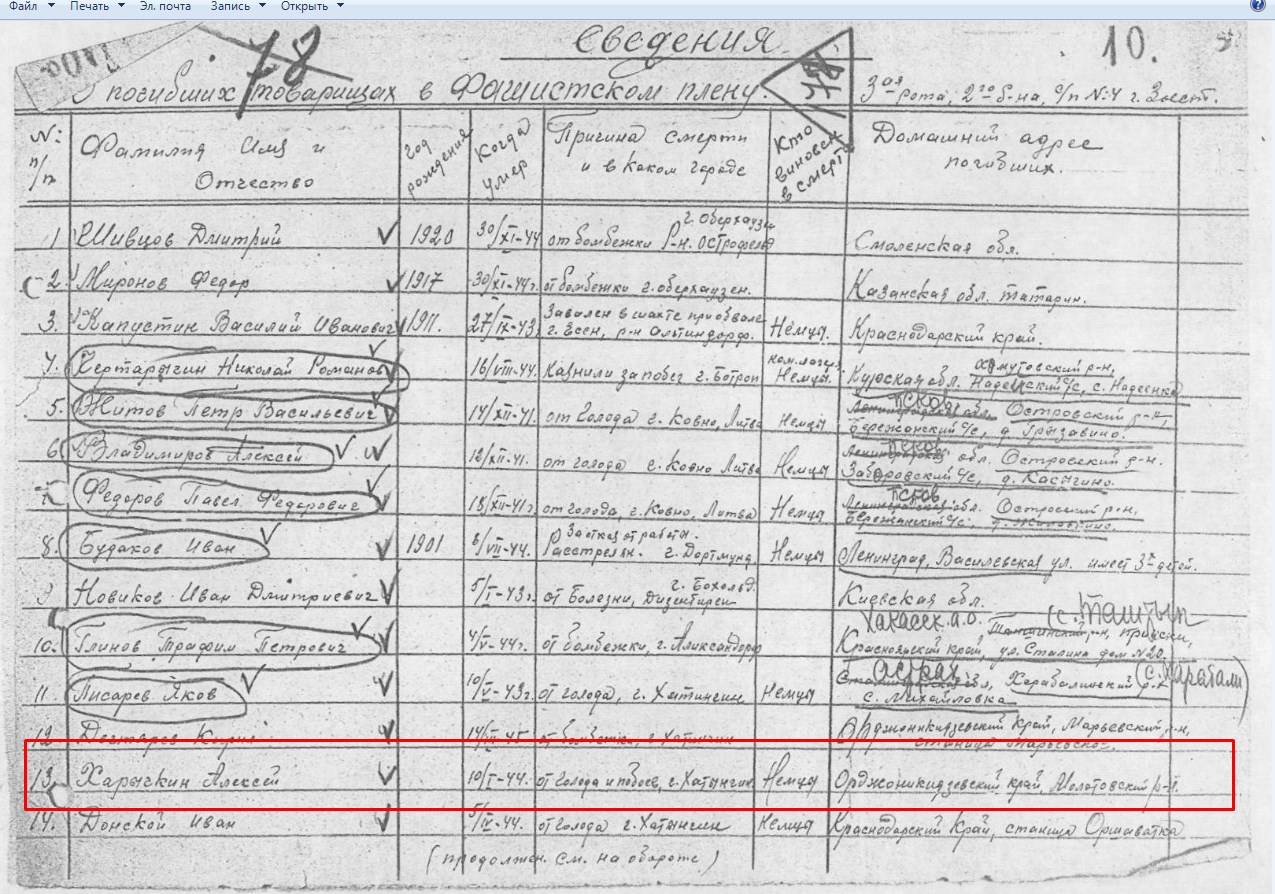 Файл Печать Эл. почта Запись Открыть
Сведения
10.
78
О погибших товарищах в Фашистском плену.
3ая рота, 2го б-на, с/п N:4 г. Зоест.
N: п/п Фамилия Имя и Отчество год рождения Когда умер Причина смерти и в каком городе Кто виновен в смерти Домашний адрес погибших.
1 Шивцов Дмитрий 1920 30/XI-44 от бомбежки г. Оберхаузен Р-н. Острофельд Смоленская обл.
2. Миронов Федор 1917 30/XI-44г. от бомбежки г. оберхаузен. Казанская обл. татарин.
3. Капустин Василий Иванович 1911. 27/IX-43. Завален в шахте при обвале г. Ессн, р-н Альтиндорф. Немцы Краснодарский край.
4. Николай Романов 16/VIII-44. Казнили за побег г. Ботроп Немцы. Хомутовский р-н, Курская обл. с/с, с.
5. Житов Петр Васильевич 14/XII-41. от Голода г. Ковно, Литва Немцы Псков Ленинградская обл. Островский р-н, Бережанский с/с, д. Грызавино.
6. Владимиров Алексей 12/XII-41. от голода г. Ковно Литва Немцы Псков Ленинградская обл. Островский р-н. Заборовский с/с, д. Касыгино.
7. Федоров Павел Федорович 18/XII-41г. от голода, г. Ковно, Литва Немцы Псков Ленинградская обл. Островский р-н, Бережанский с/с.
8. Будаков Иван 1901 6/VII-44. За отказ от работы. Расстрелян. г. Дортмунд Немцы Ленинград, Василевская ул. имеет 3х детей.
9 Новиков Иван Дмитриевич 5/I-43г. г. Бохольд. от Болезни, Дизентирен Киевская обл.
10. Глинов Трафим Петрович 4/V-44г. от бомбежки, г. Александорф Хакасск. а.о. (с. Таштып р-н, Прииски, Красноярский край, ул. Сталина дом N20.
11. Писарев Яков 10/V-43г. от голода, г. Хатингин Немцы Астрах обл, Харабалинский р-н (с. Харабали) с. Михайловка
12 Дегтарев от бомбежки, г. Хатингин Орджоникидзевский край, Марьевский р-н, станица
13. Харычкин Алексей 10/I-44. от голода и побоев, г. Хатынгин Немцы Орджоникидзевский край, Молотовский р-н.
14. Донской Иван 5/IV-44. от голода г. Хатынгин Немцы Краснодарский край, станица Оршаватка
(продолжен. см. на обороте)